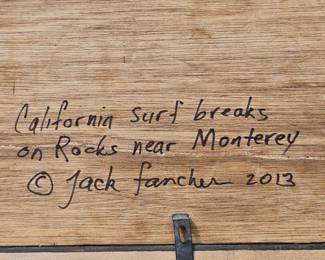 California surf breaks
on Rocks near Monterey
© Jack Fancher 2013